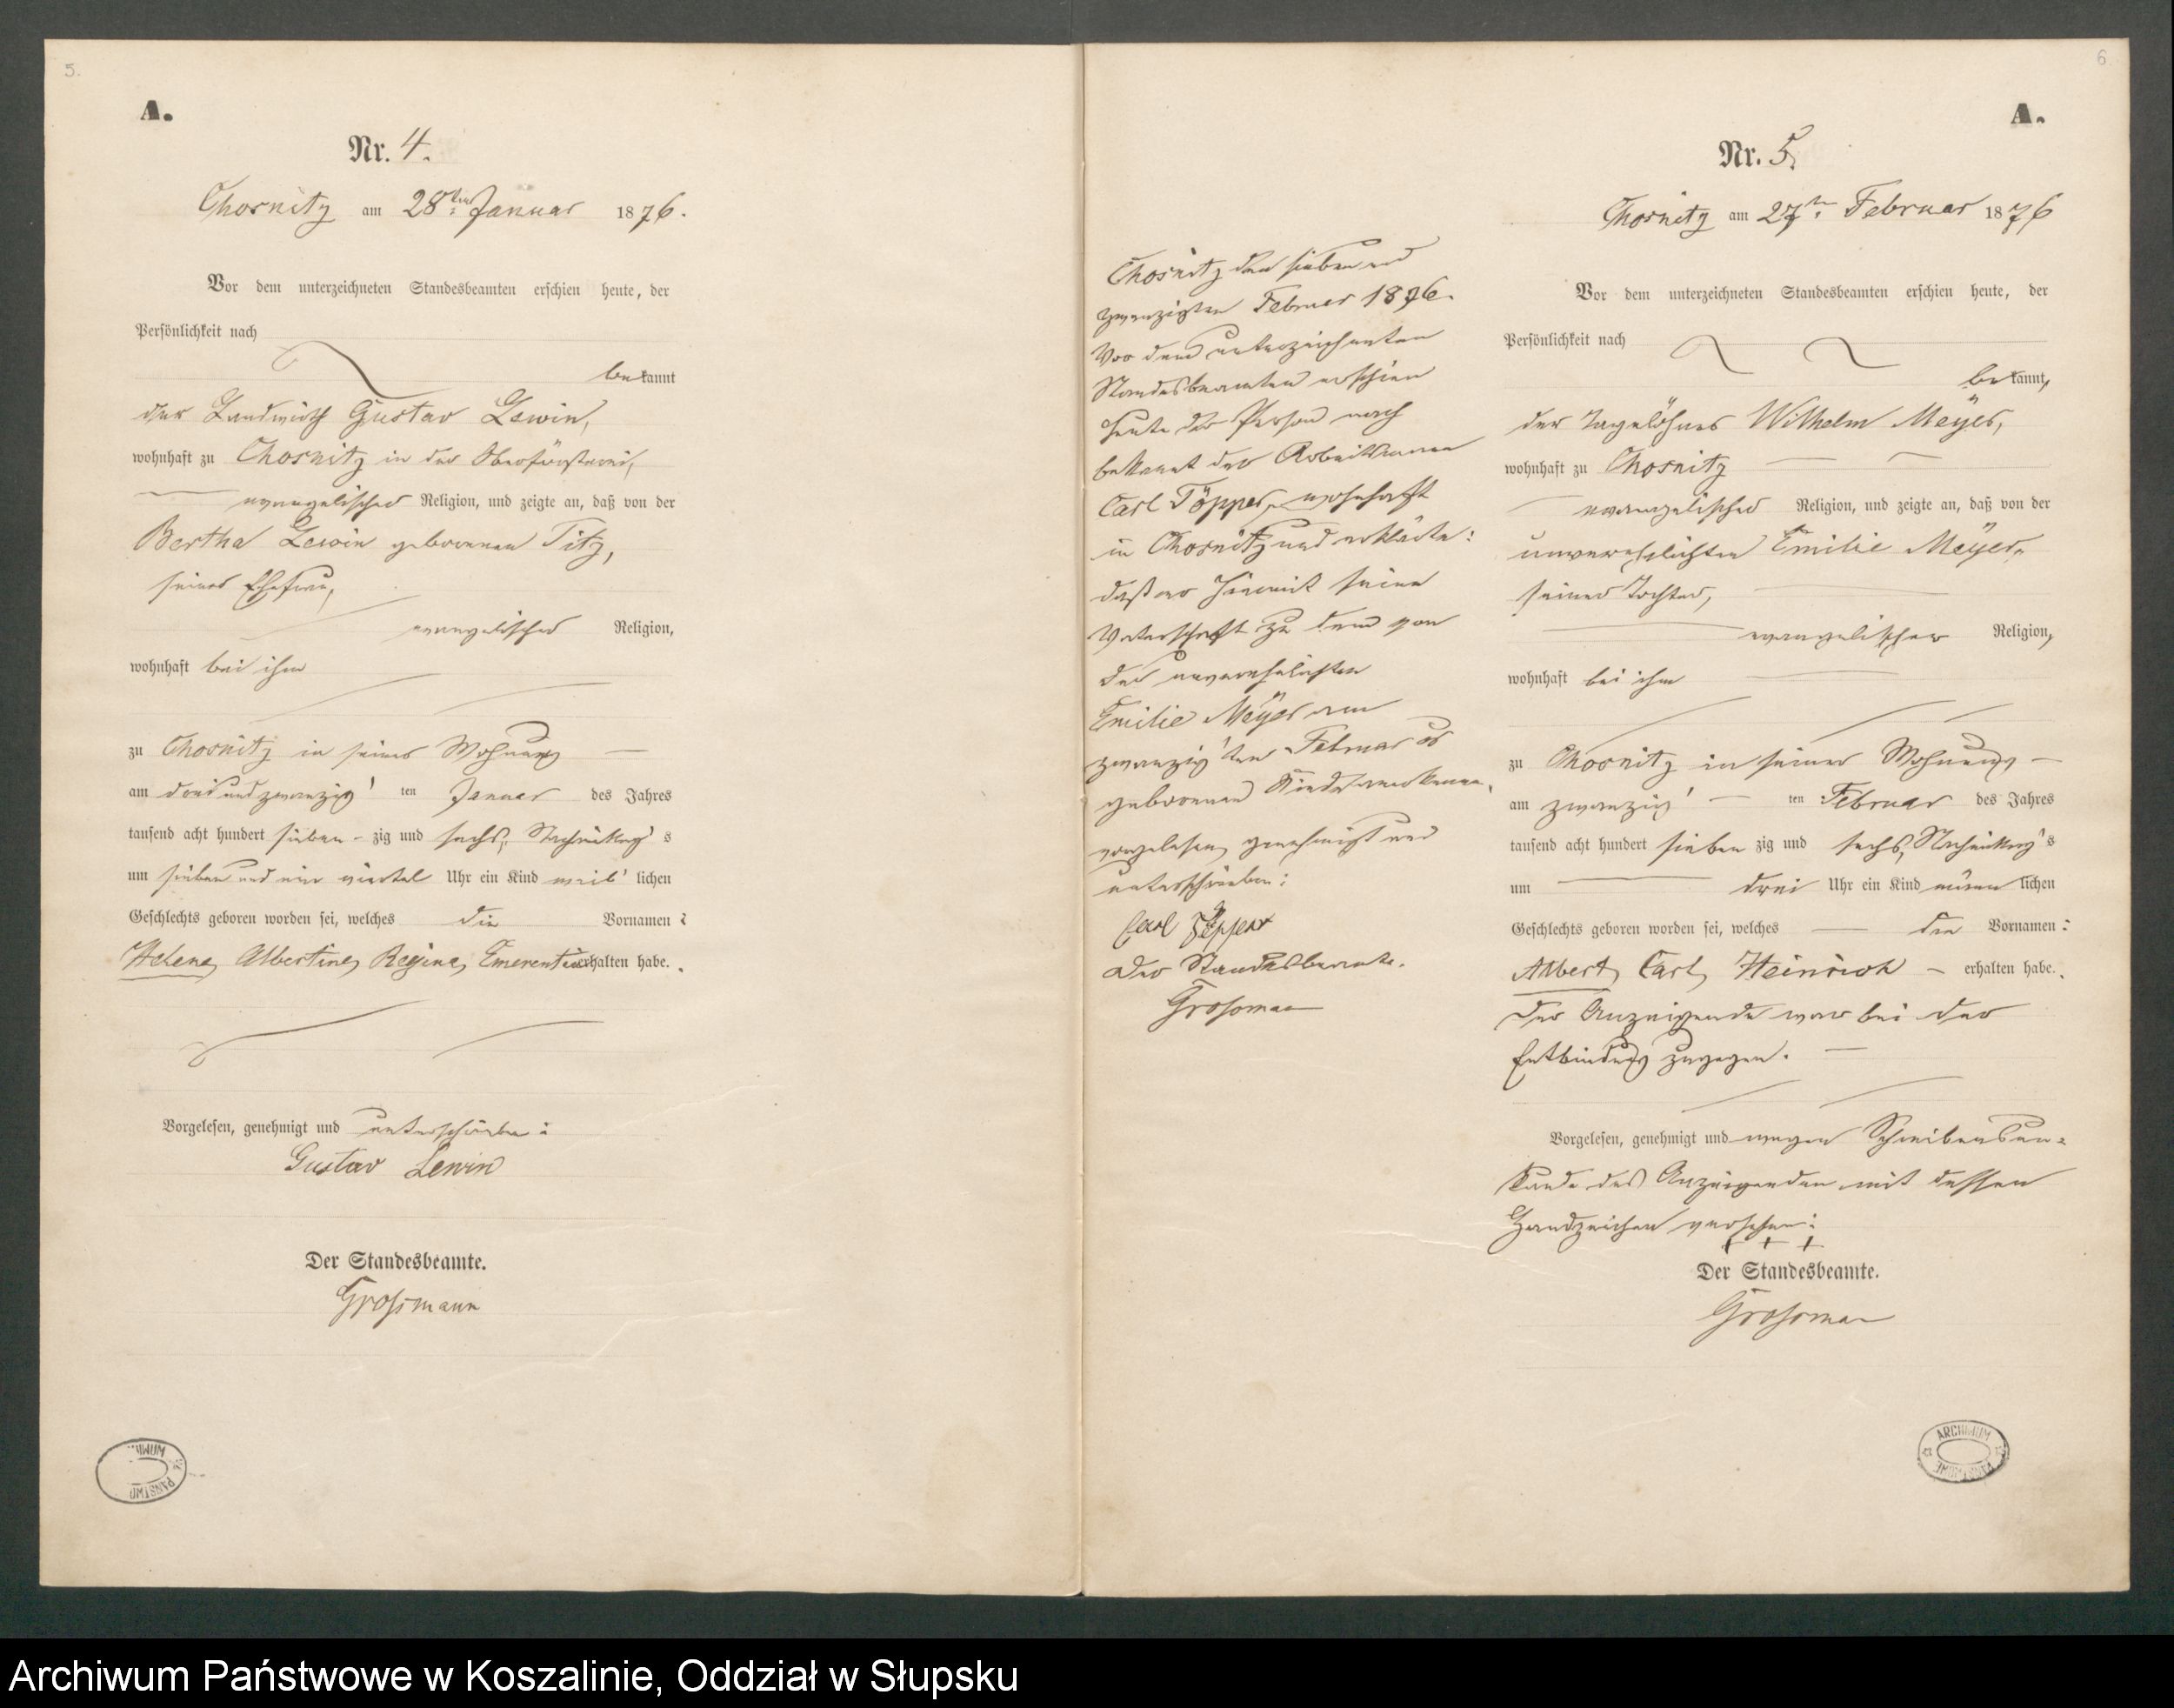 5.
A.
Nr. 4.
Chosnitz am 28ten Januar 1876.
Vor dem unterzeichneten Standesbeamten erschien heute, der
Persönlichkeit nach
bekannt
der Landwirth Gustav Lewin,
wohnhaft zu Chosnitz in der Oberförsterei,
evangelischer Religion, und zeigte an, daß von der
Bertha Lewin geborenen Titz,
seiner Ehefrau,
evangelischer Religion,
wohnhaft bei ihm
zu Chosnitz in seiner Wohnung
am drei und zwanzig' ten Januar des Jahres
tausend acht hundert sieben - zig und sechs, Nachmittag's
um sieben und ein viertel Uhr ein Kind weib' lichen
Geschlechts geboren worden sei, welches die Vornamen :
Helene, Albertine, Regine, Emerentie erhalten habe.
Vorgelesen, genehmigt und unterschrieben :
Gustav Lewin
Der Standesbeamte.
Grossmann
6
A.
Nr. 5.
Chosnitz am 27ten Februar 1876
Vor dem unterzeichneten Standesbeamten erschien heute, der
Persönlichkeit nach
bekannt,
der Tagelöhner Wilhelm Meÿer,
wohnhaft zu Chosnitz
evangelischer Religion, und zeigte an, daß von der
unverehelichten Emilie Meÿer,
seiner Tochter,
evangelischer Religion,
wohnhaft bei ihm
zu Chosnitz in seiner Wohnung
am zwanzig' ten Februar des Jahres
tausend acht hundert sieben zig und sechs, Nachmittag's
um drei Uhr ein Kind männlichen
Geschlechts geboren worden sei, welches die Vornamen :
Albert, Carl, Heinrich erhalten habe.
Der Anzeigende war bei der
Entbindung zugegen.
Vorgelesen, genehmigt und wegen Schreibensun=
kunde des Anzeigenden mit dessen
Handzeichen versehen :
+ + +
Der Standesbeamte.
Grossman
Chosnitz den sieben und
zwanzigten Februar 1876.
Vor dem unterzeichneten
Standesbeamten erschien
heute der Person nach
bekannt der Arbeitsmann
Carl Töpper, wohnhaft
in Chosnitz und erklärte :
daß er hiermit seine
Vaterschaft zu dem von
der unverehelichten
Emilie Meÿer am
zwanzig'ten Februar
geborenen Kinde anerkenne.
vorgelesen, genehmigt und
unterschrieben :
Carl Töpper
Der Standesbeamte.
Grossman
ARCHIWUM
Archiwum Państwowe w Koszalinie, Oddział w Słupsku